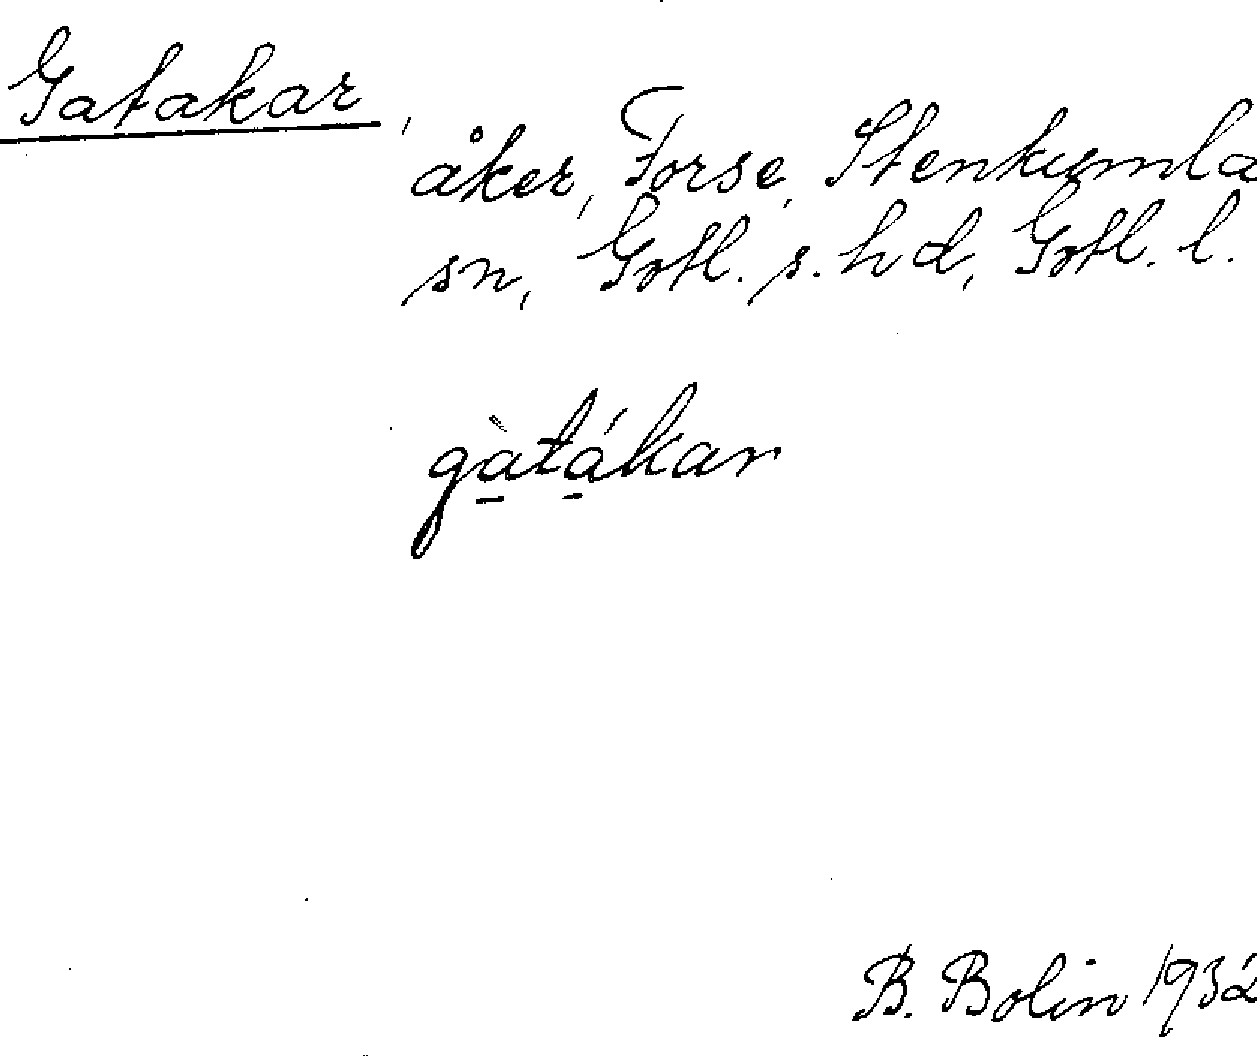 Gatakar,
åker, Forse, Stenkumla
sn, Gotl. s. hd, Gotl. l.
gàtákar
B. Bolin 1932